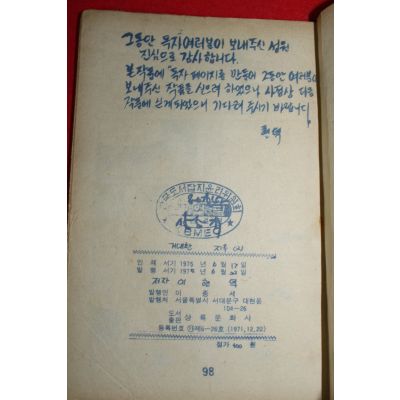 그동안 독자 여러분이 보내주신 성원
진심으로 감사합니다.
본 작품에 "독자 페이지를 만들어 그동안 여러분이
보내주신 작품을 실으려 하였으나 사정상 다음
작품에 싣게 되었으니 기다려 주시기 바랍니다
현역
인쇄 서기 1975 년 6 월 17 일
발행 서기 197 년 6 월 20 일
저자 이 현 역
발행인 이 종 서
발행처 서울특별시 서대문구 대현동
104-26
도서
출판 상록문화사
등록번호 제6-26호 (1971.12.20)
정가 400 원
98